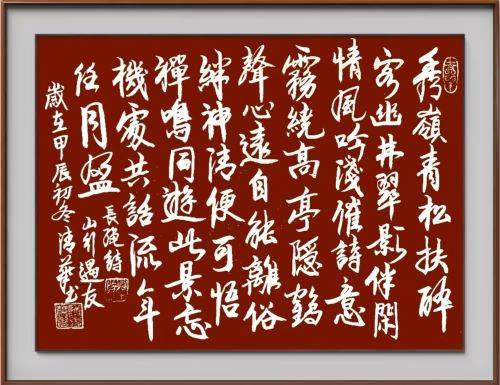 秀嶺青松扶醉
客幽林翠影伴閑
情風吟淺催詩意
霧繞高亭隱鶴
聲心遠自能離俗
絆神清便可悟
禪鳴同遊此景忘
機處共話流年
任月盈
長詩
山行遇友
歲在甲辰初冬清華书